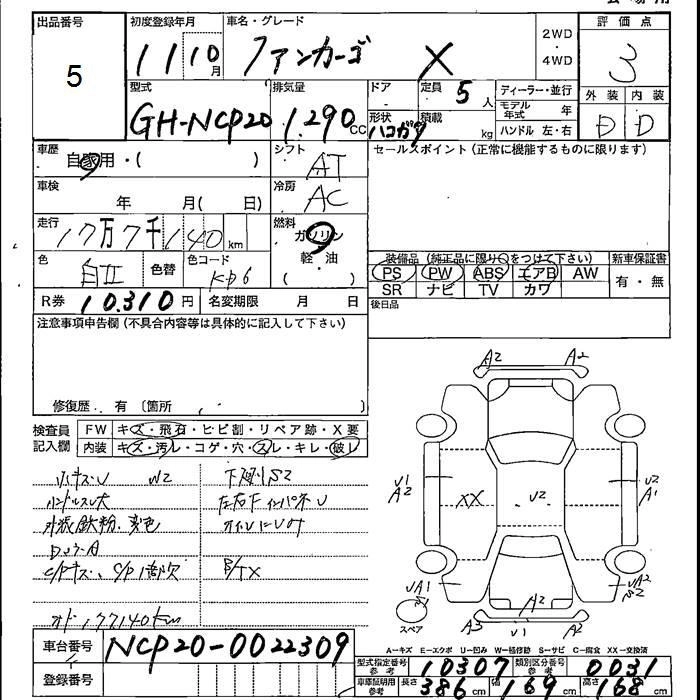 出品番号 初度登録年月 車名・グレード 評価点
5 11 10月 ファンカーゴ X 2WD・4WD 3
型式 排気量 ドア 定員 5人 ディーラー・並行 外装 内装
GH-NCP20 1.290cc 形状 ハコガタ 積載 kg モデル年式 年 D D
ハンドル 左・右
車歴 自家用・( ) シフト AT セールスポイント(正常に機能するものに限ります)
車検 年 月( 日) 冷房 AC
走行 17万7千140km 燃料 ガソリン・軽・油( )
色 白II 色替 色コード
装備品(純正品に限り○をつけて下さい) 新車保証書
PS PW ABS エアB AW 有・無
SR ナビ TV カワ
R券 10.310円 名変期限 月 日 後日品
注意事項申告欄(不具合内容等は具体的に記入して下さい)
修復歴.有〔箇所 〕
検査員記入欄 FW キズ・飛石・ヒビ割・リペア跡・X要
内装 キズ・汚レ・コゲ・穴・スレ・キレ・破レ
A2 A2
W2 下廻りS2
ハンドルスレ大
外装鉄粉.変色
U1 A2 XX U2 U2 A1
A2
スペア A3 U1 A2
車台番号 NCP20-0022309
登録番号
A-キズ E-エクボ U-凹み W-補修跡 S-サビ C-腐食 XX-交換済
型式指定番号 参考 10307 類別区分番号 参考 0031
車庫証明用 参考 長さ 386cm 幅 169cm 高さ 168cm